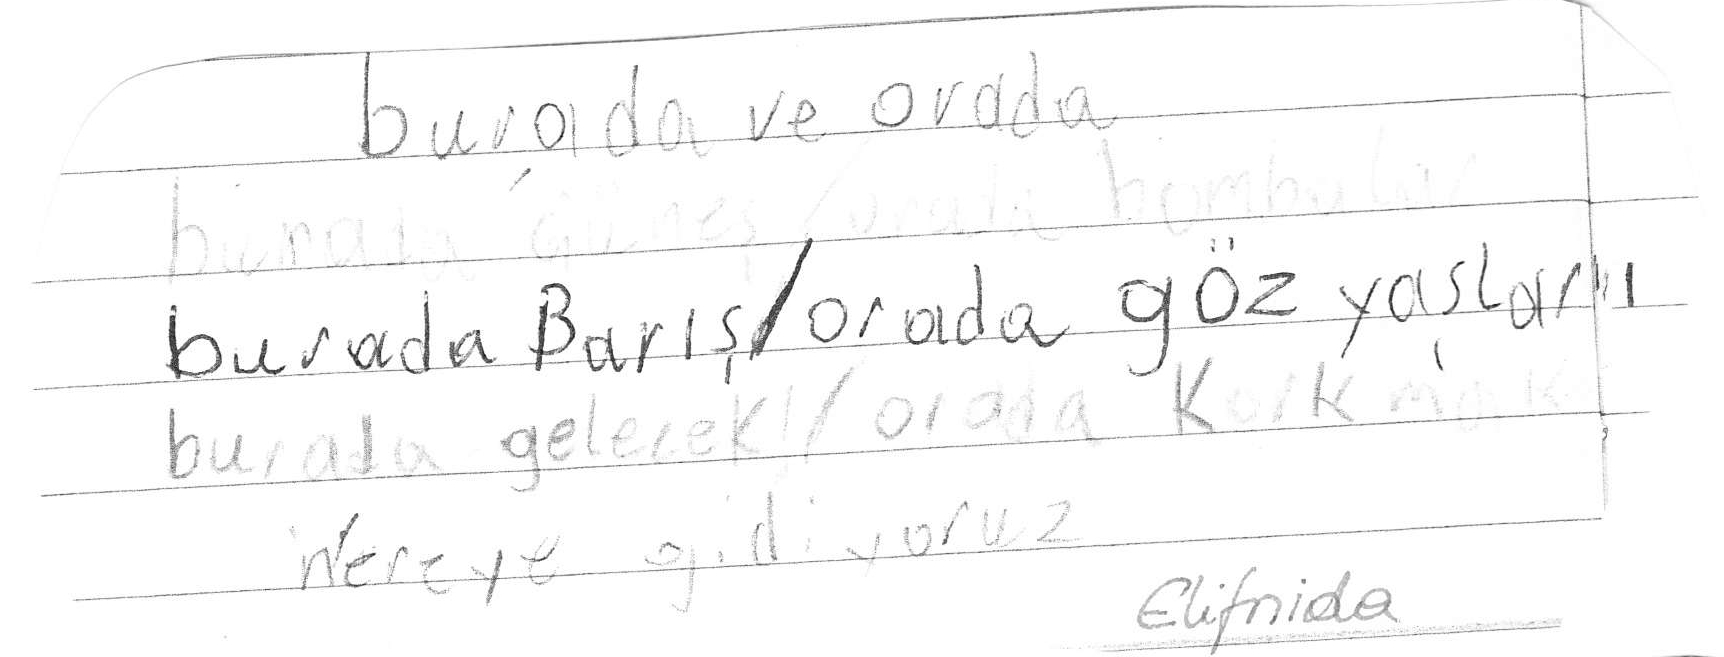 burada ve orada
burada Güneş / orada bombalar
burada Barış / orada göz yaşları
burada gelecek / orada Korkmak
Nereye gidiyoruz
Elifnida